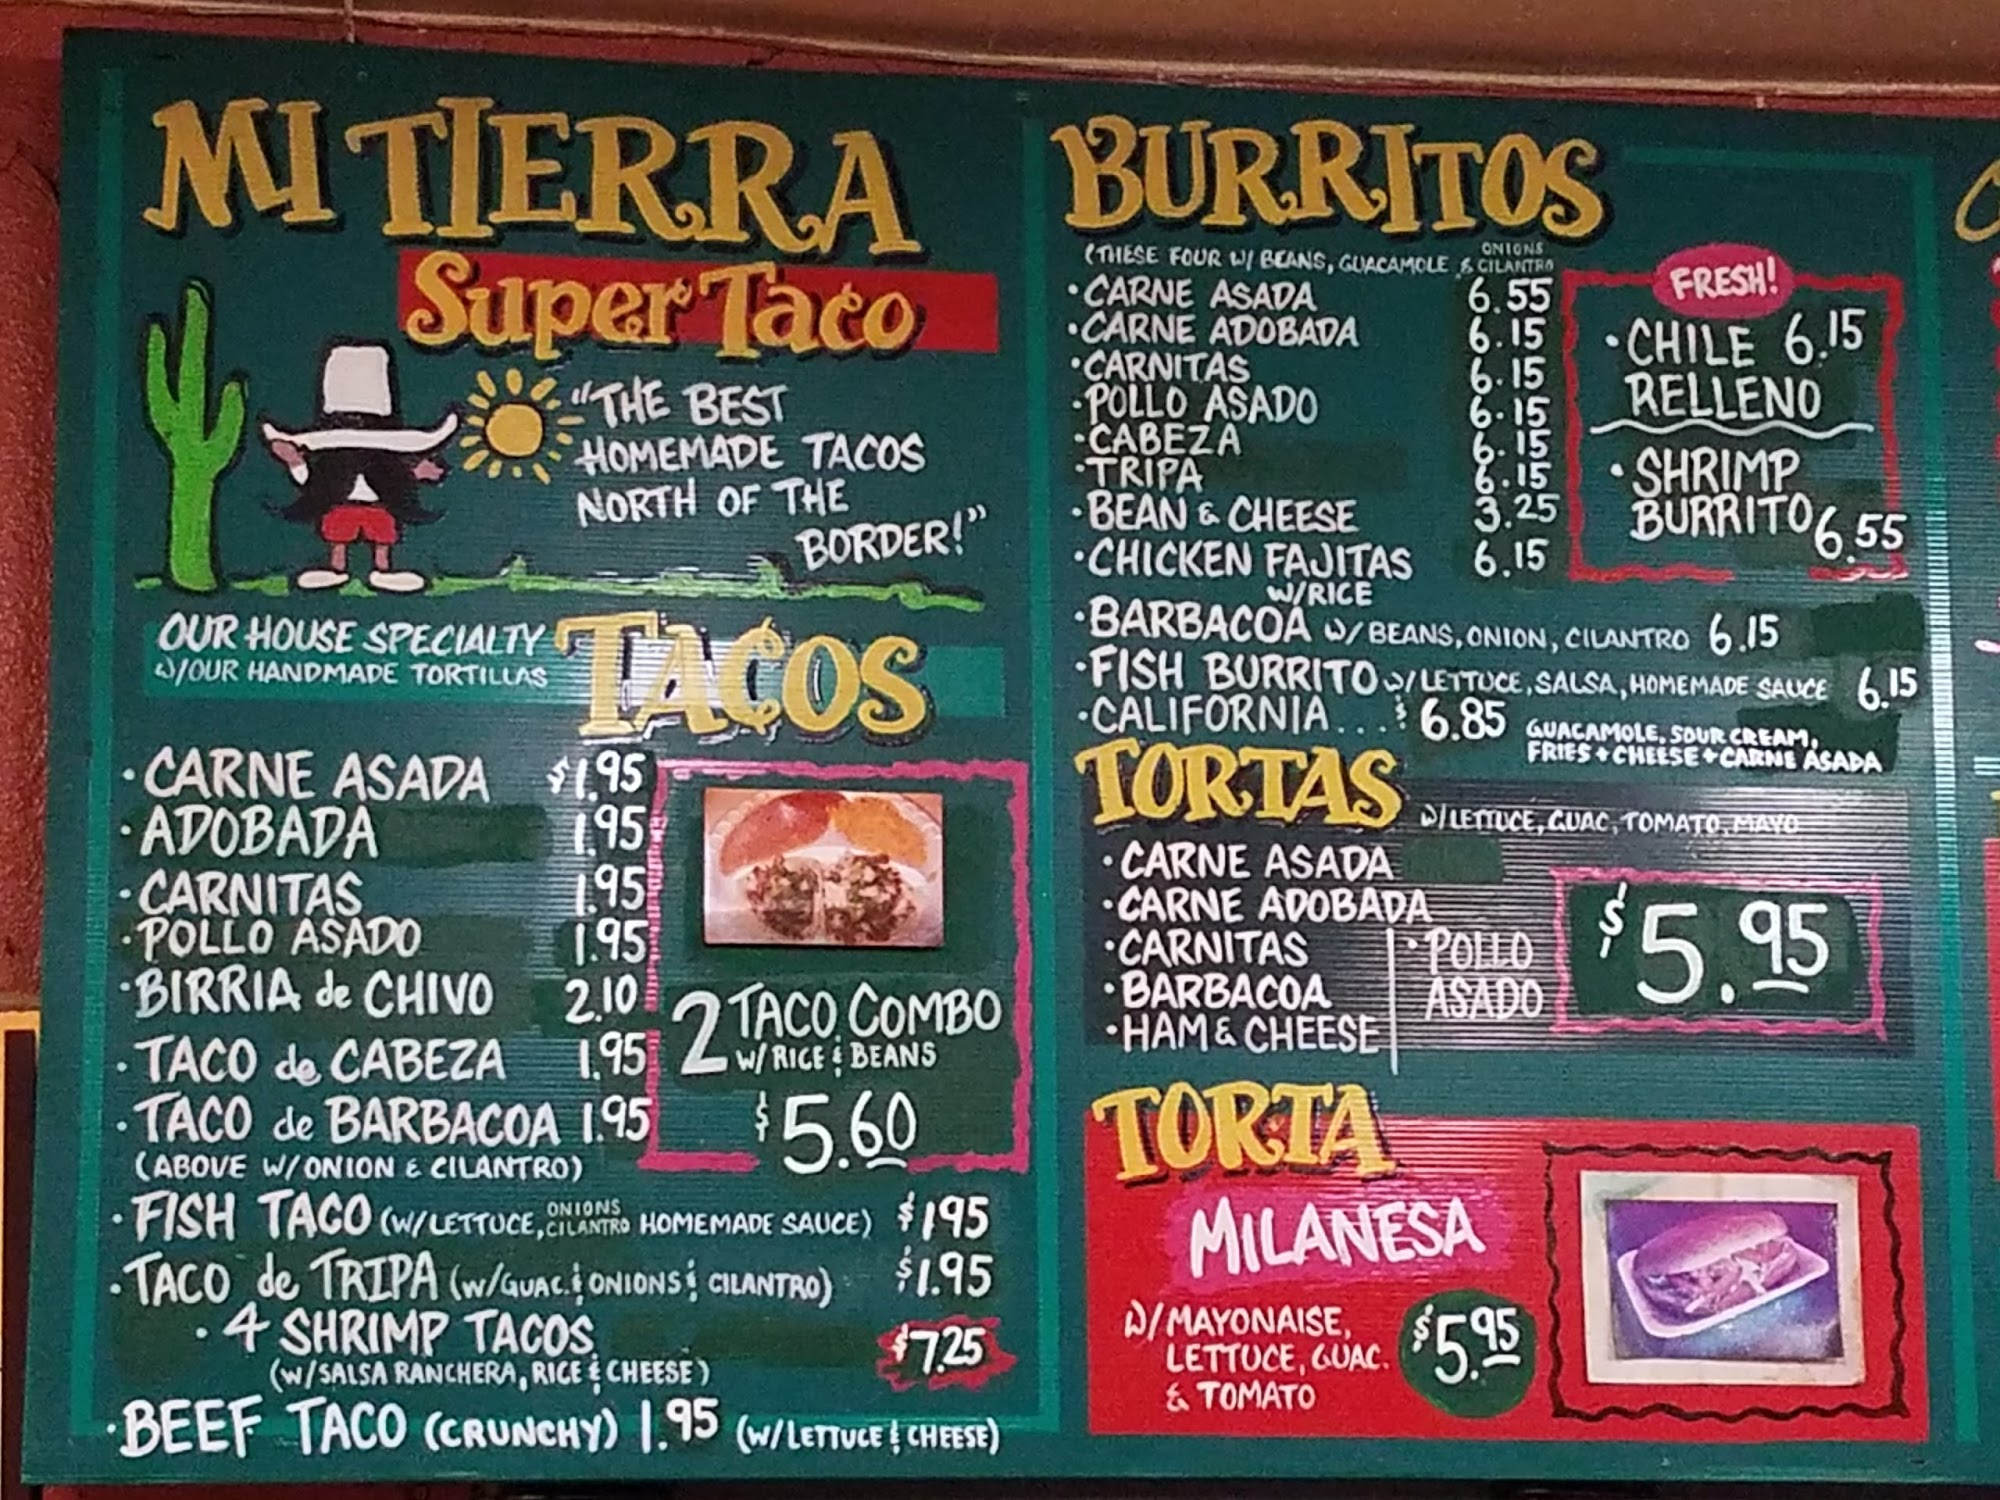 MI TIERRA
Super Taco
"THE BEST
HOMEMADE TACOS
NORTH OF THE
BORDER!"
OUR HOUSE SPECIALTY
W/OUR HANDMADE TORTILLAS
TACOS
• CARNE ASADA $1.95
• ADOBADA 1.95
• CARNITAS 1.95
• POLLO ASADO 1.95
• BIRRIA de CHIVO 2.10
• TACO de CABEZA 1.95
• TACO de BARBACOA 1.95
(ABOVE W/ONION & CILANTRO)
2 TACO COMBO
W/RICE & BEANS
$5.60
• FISH TACO (W/LETTUCE, ONIONS CILANTRO HOMEMADE SAUCE) $195
• TACO de TRIPA (W/GUAC. & ONIONS & CILANTRO) $1.95
• 4 SHRIMP TACOS $7.25
(W/SALSA RANCHERA, RICE & CHEESE)
• BEEF TACO (CRUNCHY) 1.95 (W/LETTUCE & CHEESE)
BURRITOS
(THESE FOUR W/ BEANS, GUACAMOLE & ONIONS CILANTRO
• CARNE ASADA 6.55
• CARNE ADOBADA 6.15
• CARNITAS 6.15
• POLLO ASADO 6.15
• CABEZA 6.15
• TRIPA 6.15
• BEAN & CHEESE 3.25
• CHICKEN FAJITAS 6.15
W/RICE
• BARBACOA W/BEANS, ONION, CILANTRO 6.15
• FISH BURRITO W/LETTUCE, SALSA, HOMEMADE SAUCE 6.15
• CALIFORNIA... $6.85 GUACAMOLE, SOUR CREAM,
FRIES + CHEESE + CARNE ASADA
FRESH!
• CHILE 6.15
RELLENO
• SHRIMP
BURRITO 6.55
TORTAS
W/LETTUCE, GUAC, TOMATO, MAYO
• CARNE ASADA
• CARNE ADOBADA
• CARNITAS
• BARBACOA
• HAM & CHEESE
• POLLO
ASADO
$5.95
TORTA
MILANESA
W/MAYONAISE,
LETTUCE, GUAC.
& TOMATO
$5.95